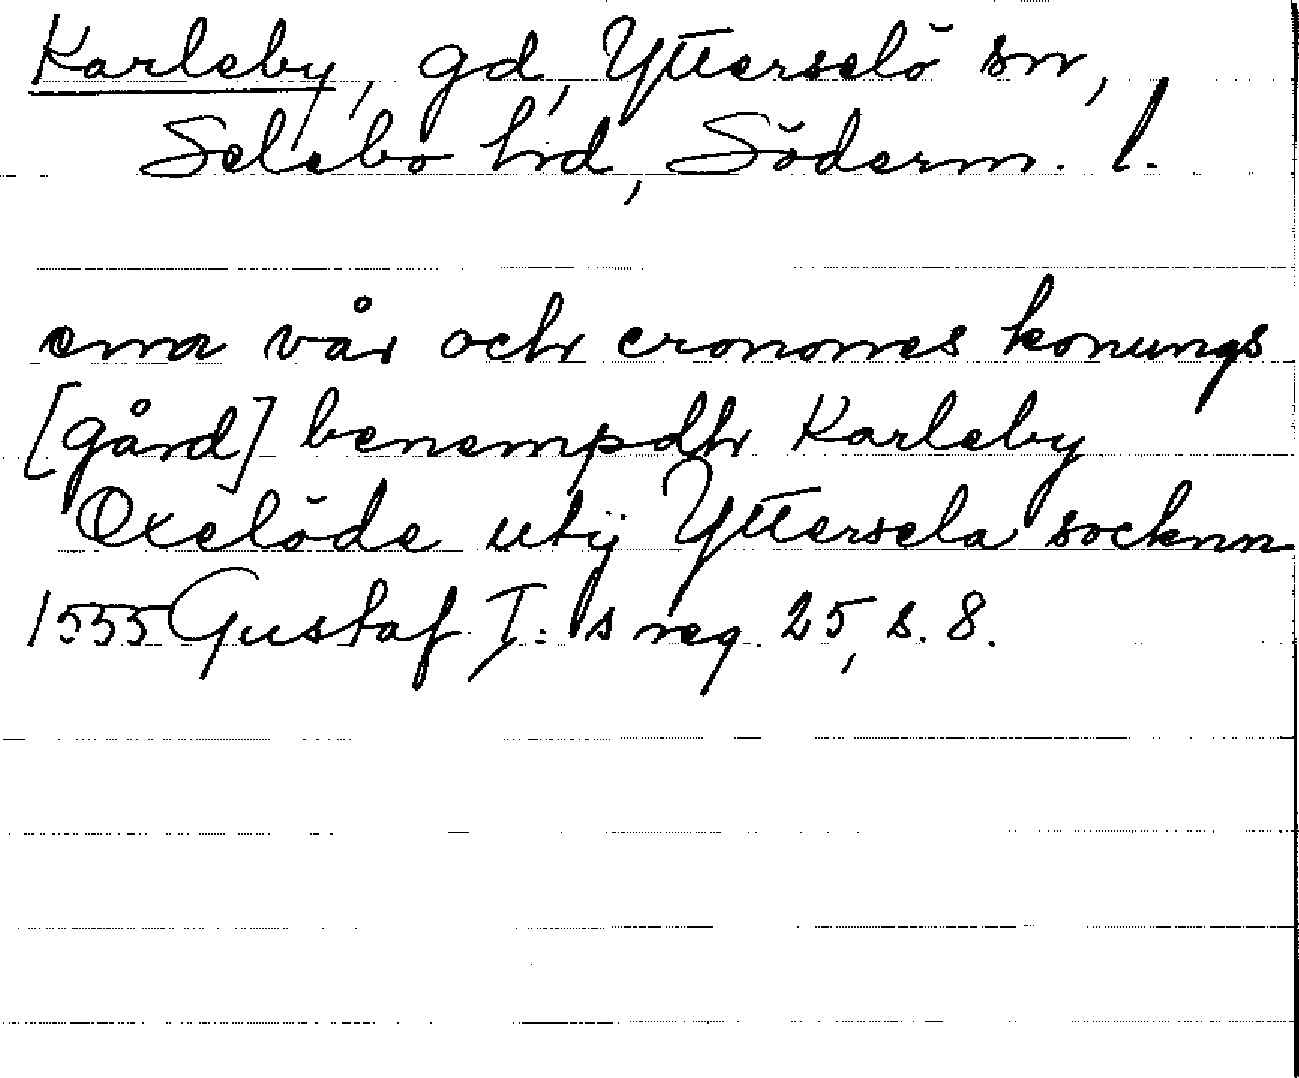 Karleby, gd, Ytterselö sn,
Selebo hd, Söderm. l.
ena vår och cronones konungs
[gård] benempdh Karleby
Oxelöde utij Yttersela socknn
1555 Gustaf I:s reg. 25, s. 8.